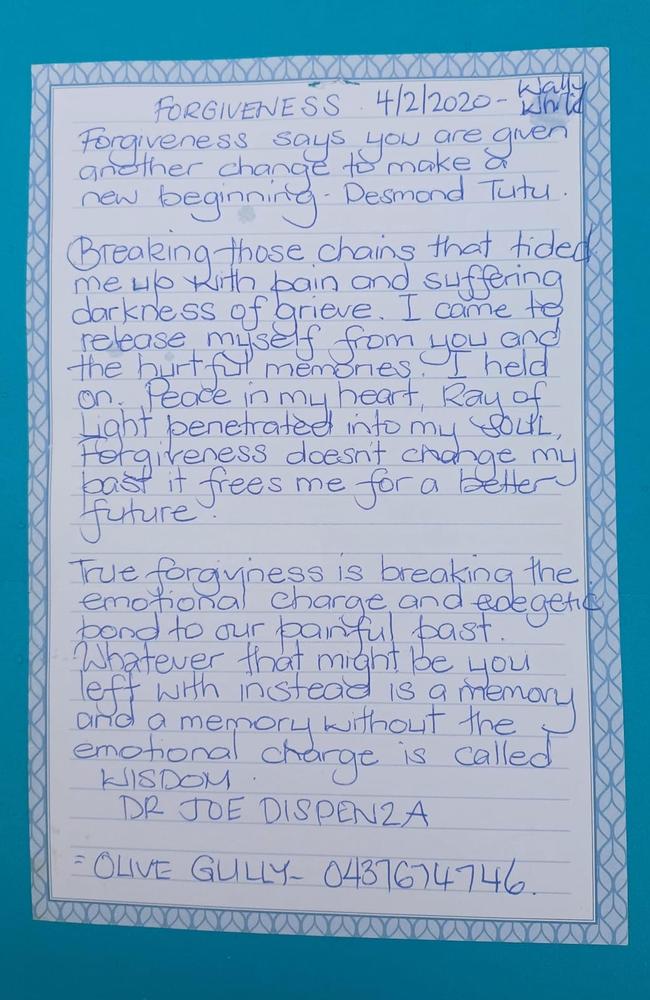 FORGIVENESS 4/2/2020 - Wally World
Forgiveness says you are given
another change to make a
new beginning - Desmond Tutu.
Breaking those chains that tided
me up with pain and suffering
darkness of grieve. I came to
release myself from you and
the hurtful memories. I held
on. Peace in my heart, Ray of
Light penetrated into my SOUL,
Forgiveness doesn't change my
past it frees me for a better
future.
True forgiviness is breaking the
emotional charge and
bond to our painful past.
Whatever that might be you
left with instead is a memory
and a memory without the
emotional charge is called
WISDOM.
DR JOE DISPENZA
= OLIVE GULLY - 0437674746.